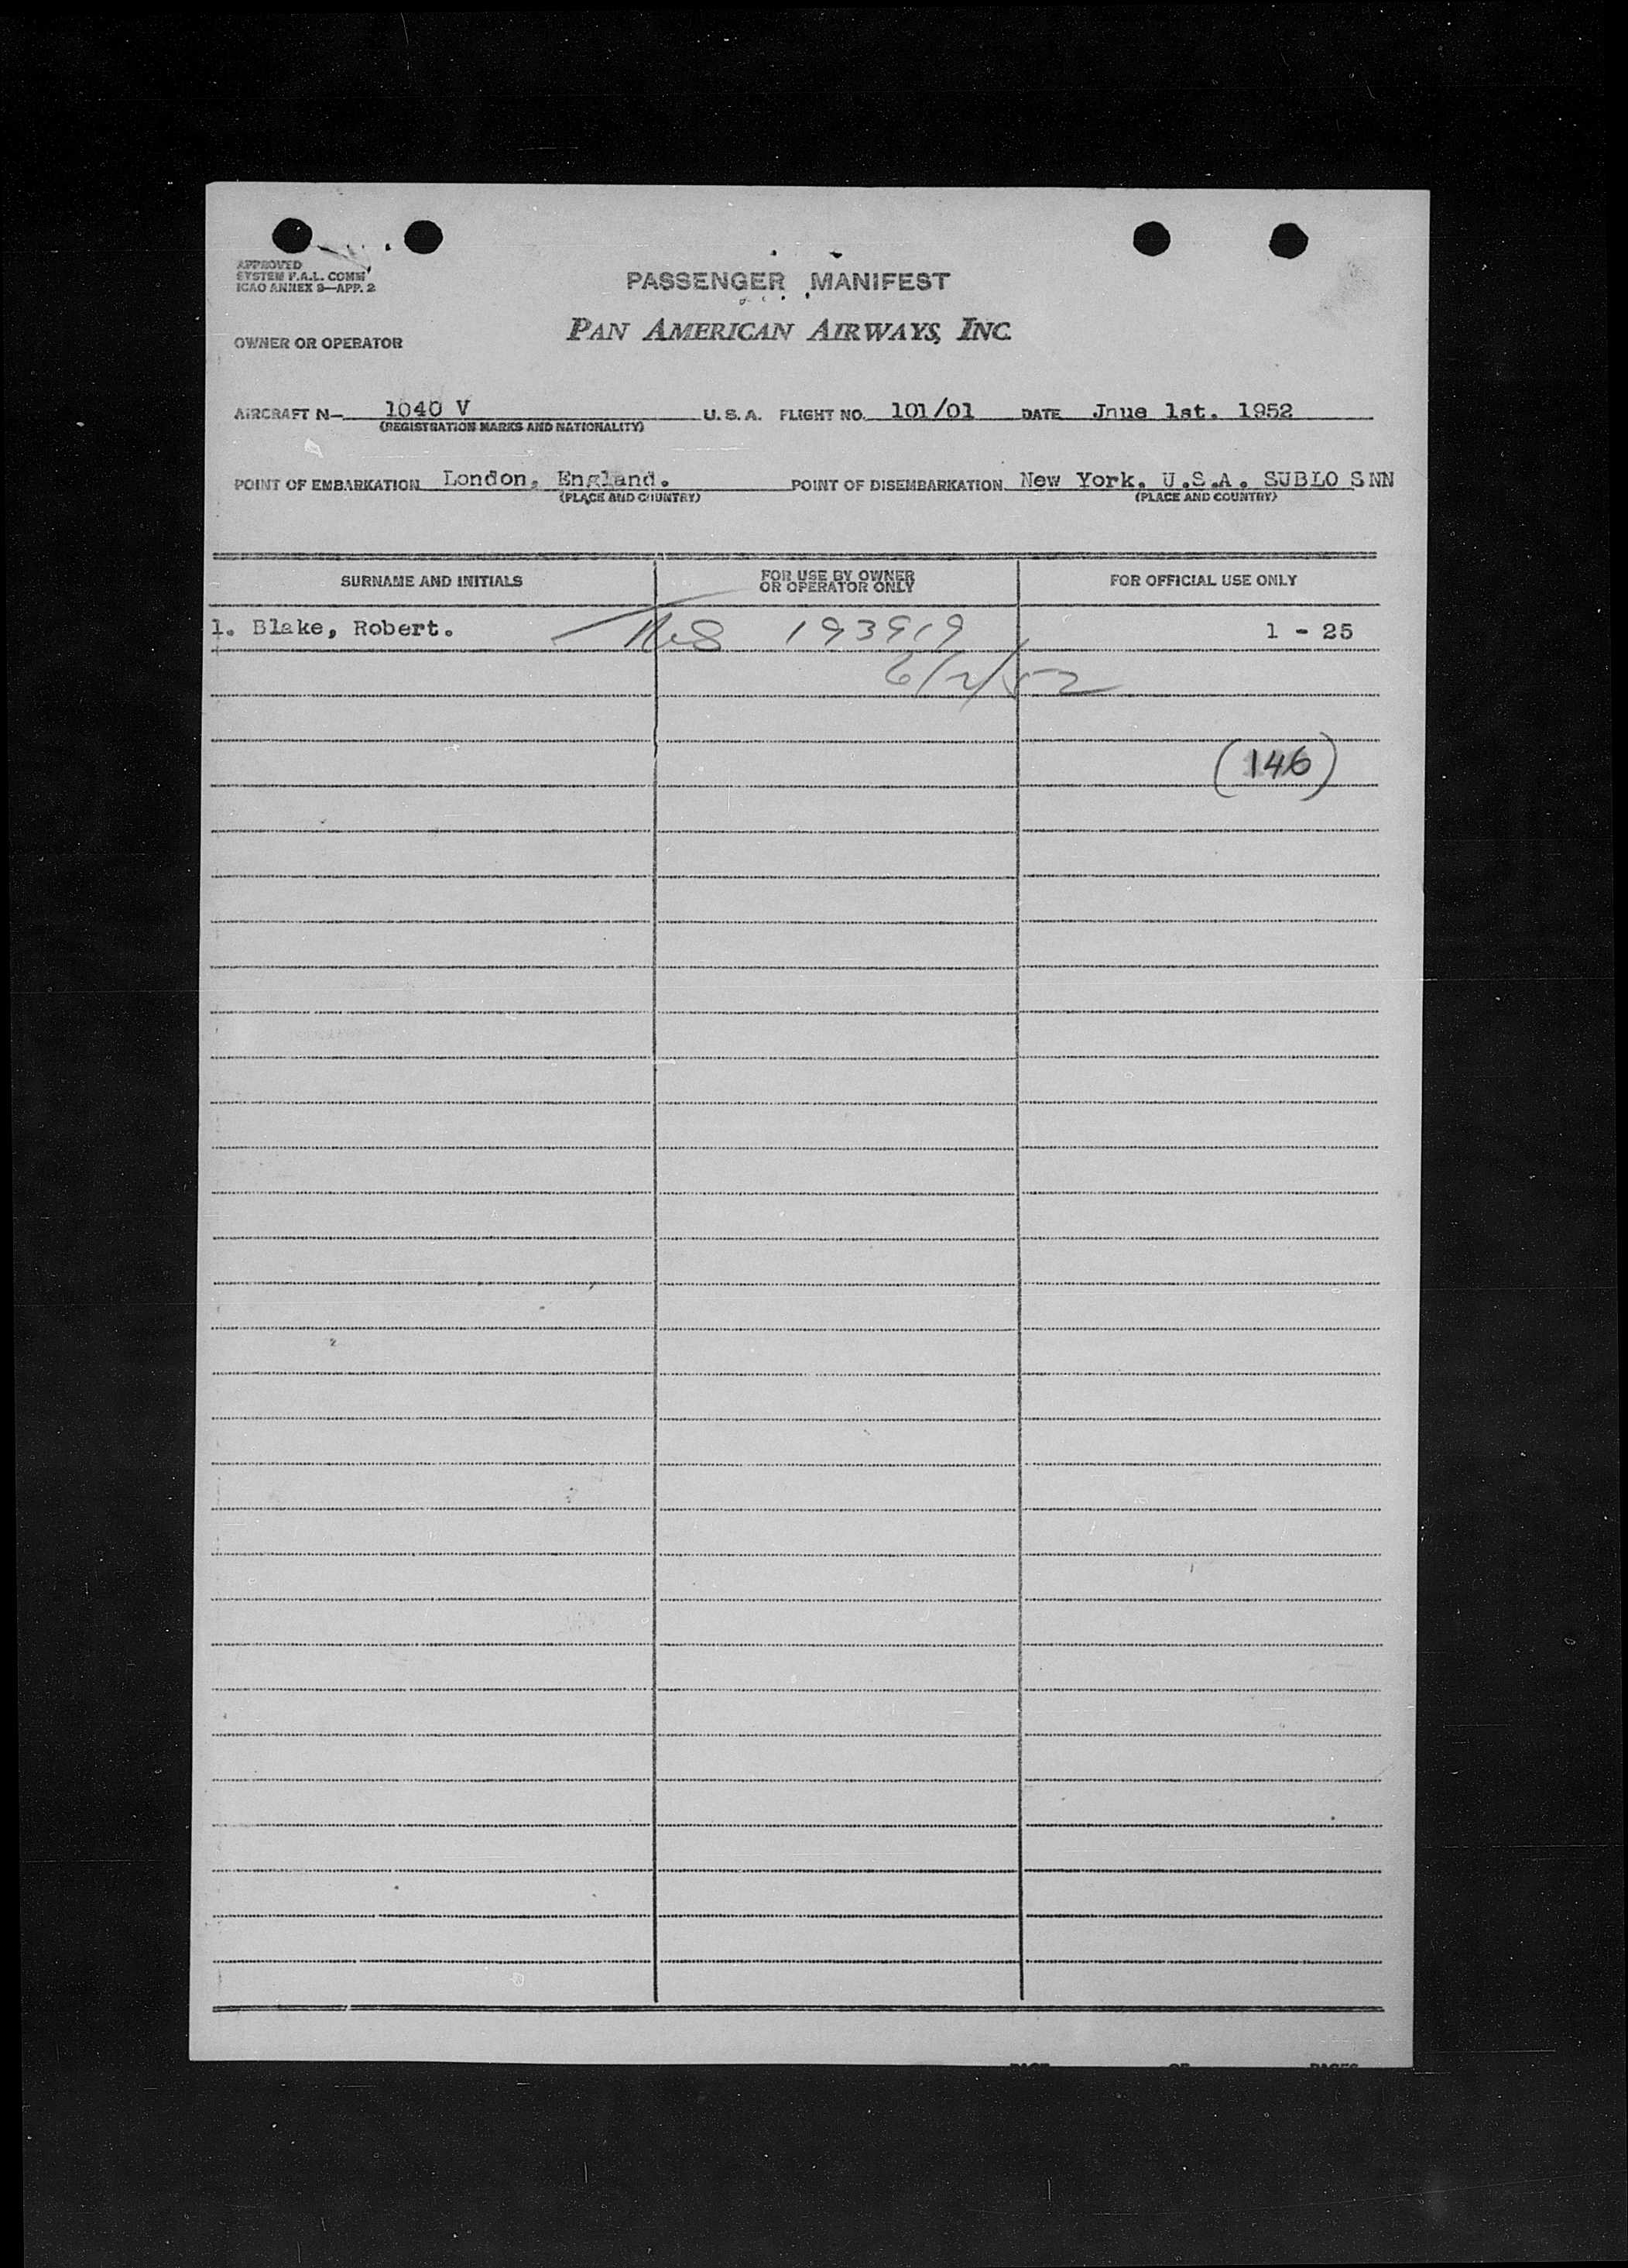 APPROVED
SYSTEM F.A.L. COMM
ICAO ANNEX 9—APP. 2
PASSENGER MANIFEST
OWNER OR OPERATOR PAN AMERICAN AIRWAYS, INC.
AIRCRAFT N— 1040 V U.S.A. FLIGHT NO. 101/01 DATE Jnue 1st. 1952
(REGISTRATION MARKS AND NATIONALITY)
POINT OF EMBARKATION London, England. POINT OF DISEMBARKATION New York. U.S.A. SUBLO SNN
(PLACE AND COUNTRY) (PLACE AND COUNTRY)
SURNAME AND INITIALS FOR USE BY OWNER OR OPERATOR ONLY FOR OFFICIAL USE ONLY
1. Blake, Robert. 193919 1 - 25
6/2/52
(146)
PAGE OF PAGES